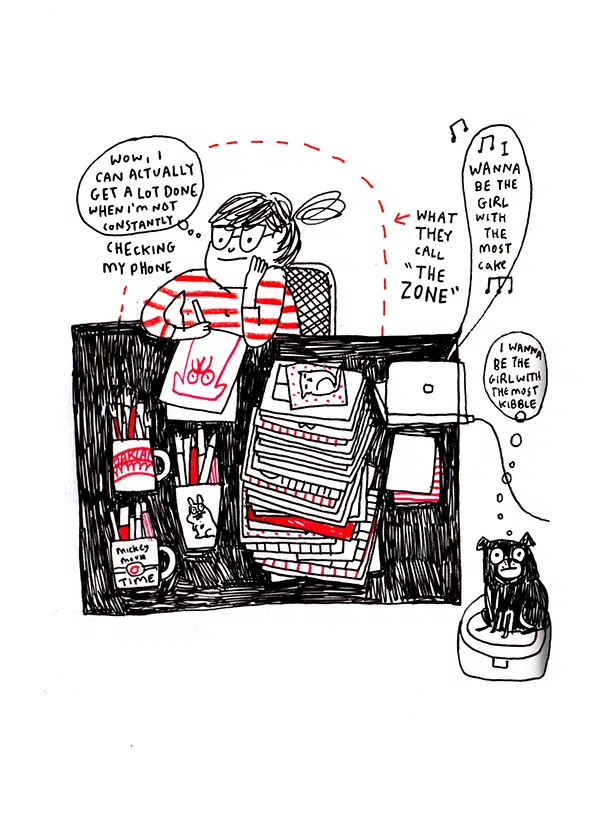 WOW, I
CAN ACTUALLY
GET A LOT DONE
WHEN I'M NOT
CONSTANTLY
CHECKING
MY PHONE
WHAT
THEY
CALL
"THE
ZONE"
I
WANNA
BE THE
GIRL
WITH
THE
MOST
CAKE
I WANNA
BE THE
GIRL WITH
THE MOST
KIBBLE
MICKEY
MOUSE
TIME